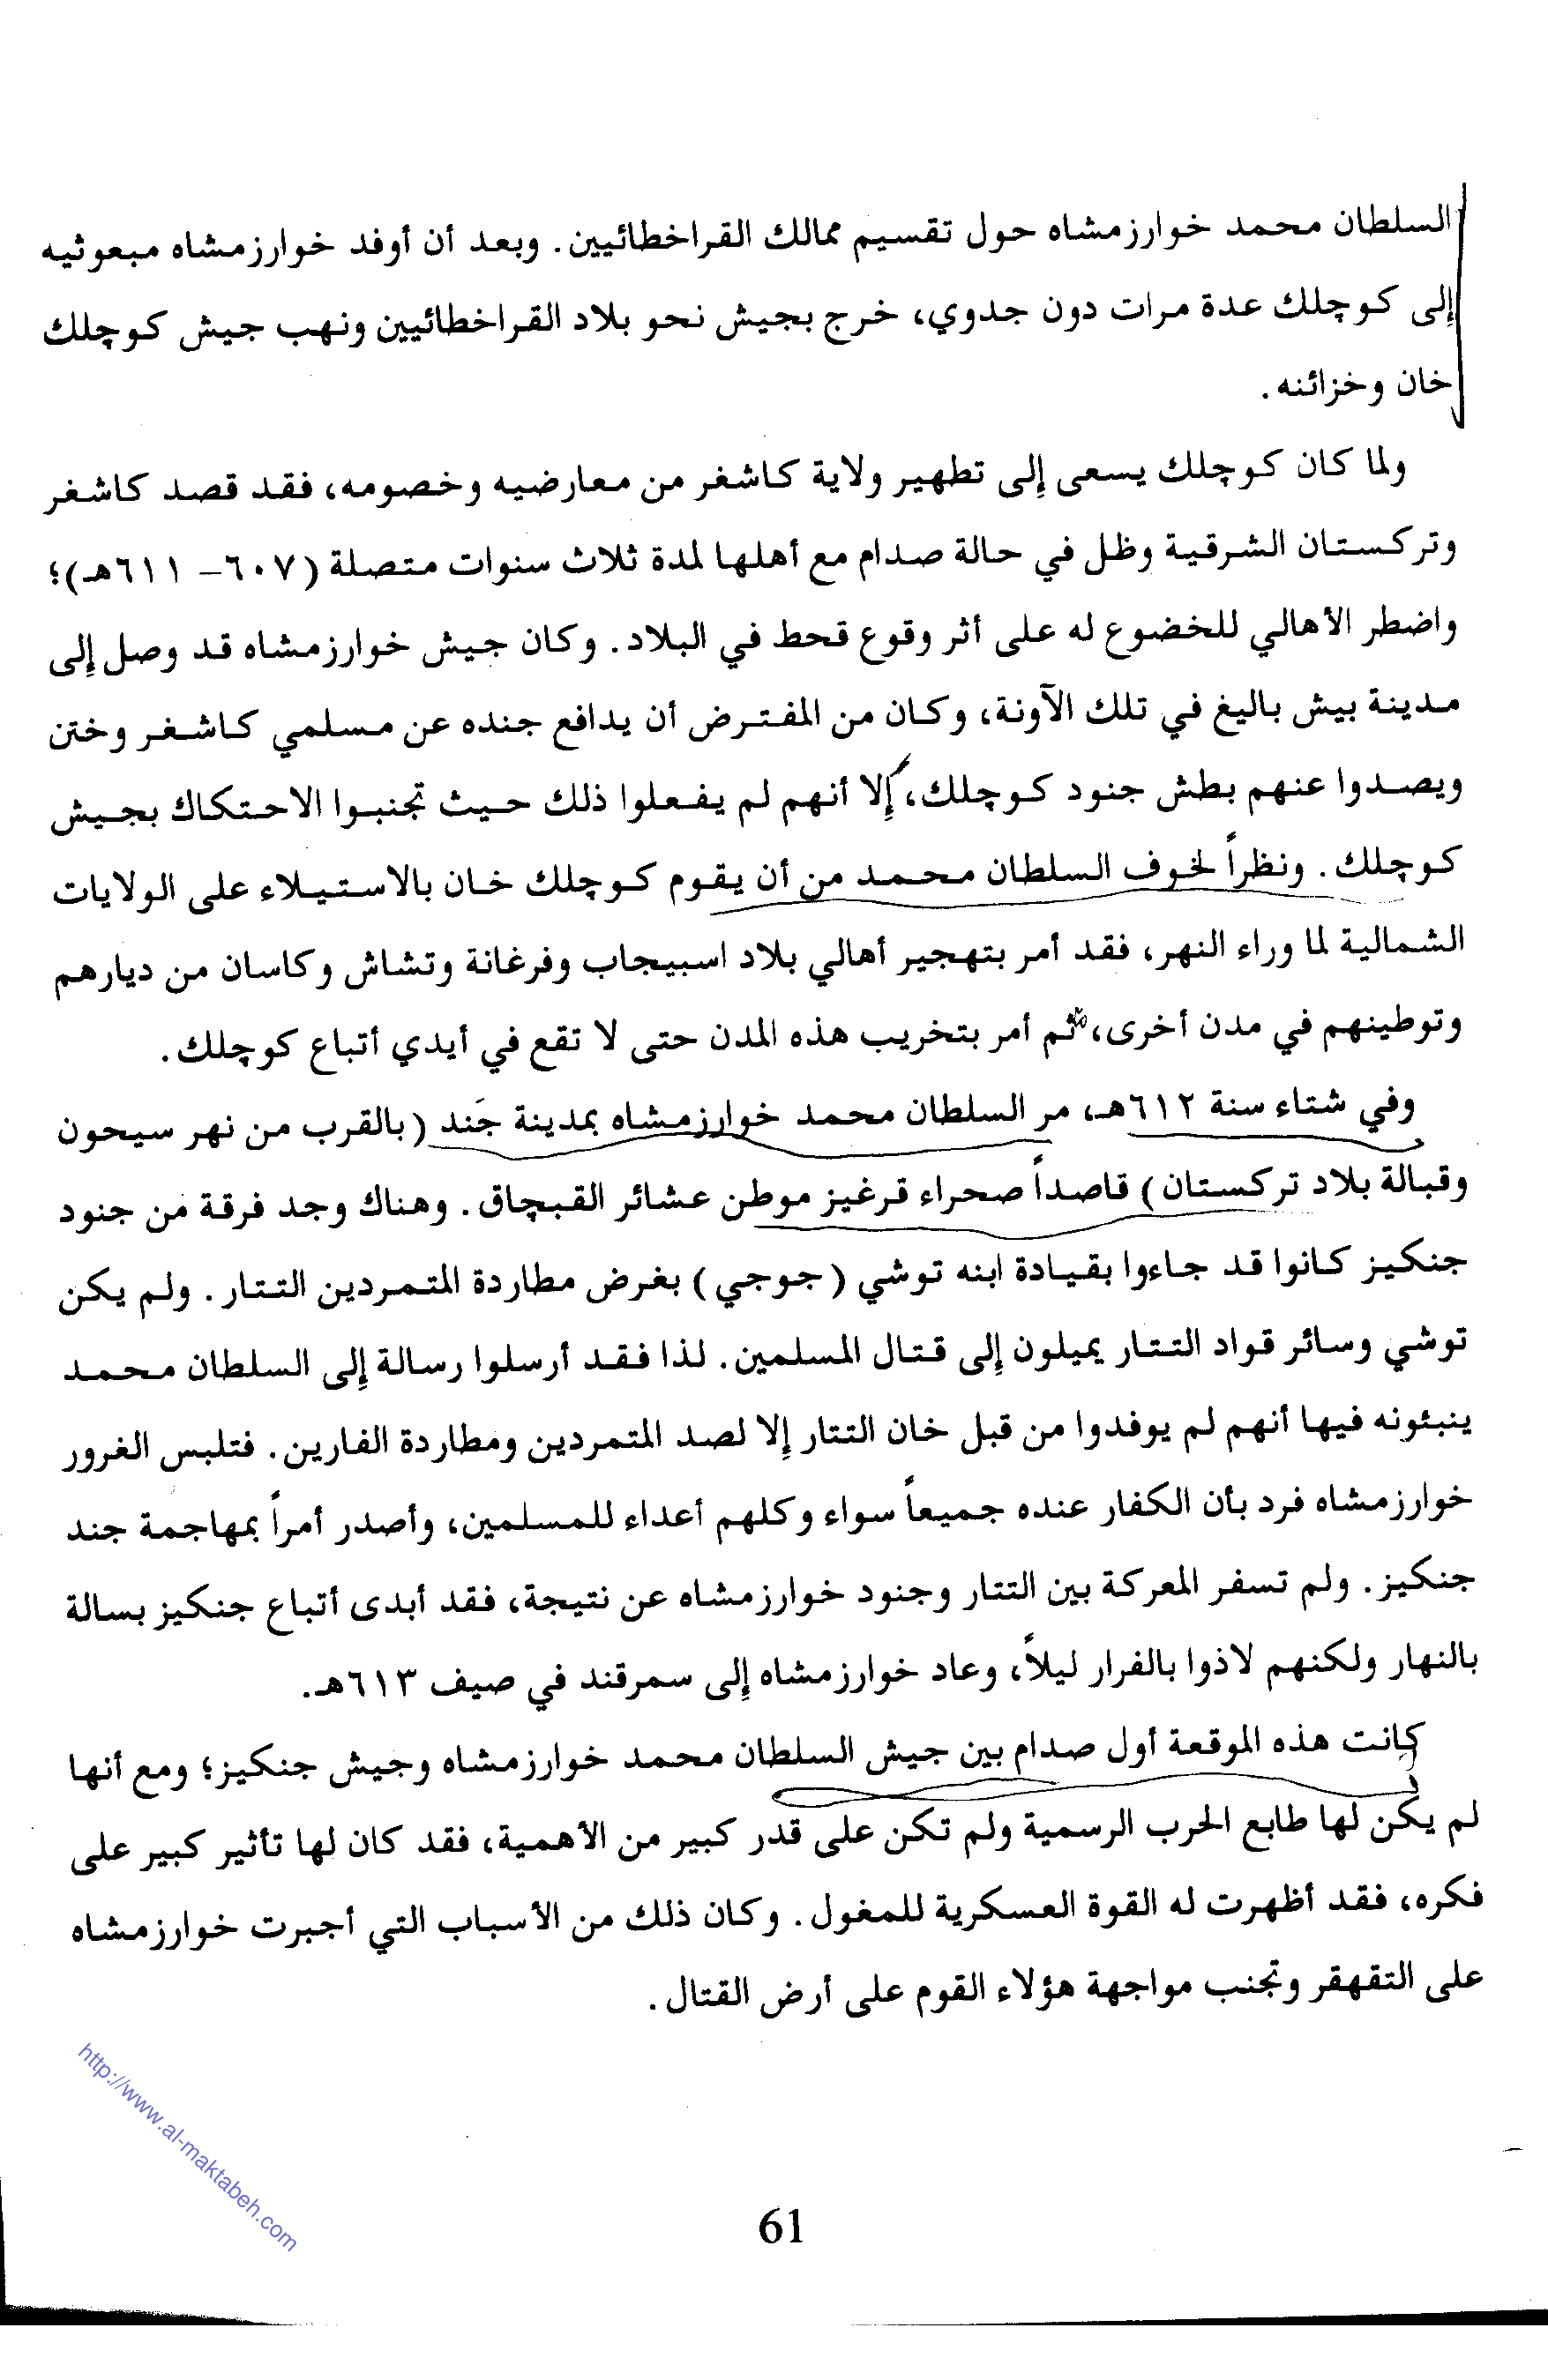 السلطان محمد خوارزمشاه حول تقسيم ممالك القراخطائيين. وبعد أن أوفد خوارزمشاه مبعوثيه
إلى كوچلك عدة مرات دون جدوي، خرج بجيش نحو بلاد القراخطائيين ونهب جيش كوچلك
خان وخزائنه.
ولما كان كوچلك يسعى إلى تطهير ولاية كاشغر من معارضيه وخصومه، فقد قصد كاشغر
وتركستان الشرقية وظل في حالة صدام مع أهلها لمدة ثلاث سنوات متصلة (٦٠٧– ٦١١هـ)؛
واضطر الأهالي للخضوع له على أثر وقوع قحط في البلاد. وكان جيش خوارزمشاه قد وصل إلى
مدينة بيش باليغ في تلك الآونة، وكان من المفترض أن يدافع جنده عن مسلمي كاشغر وختن
ويصدوا عنهم بطش جنود كوچلك، إلا أنهم لم يفعلوا ذلك حيث تجنبوا الاحتكاك بجيش
كوچلك. ونظراً لخوف السلطان محمد من أن يقوم كوچلك خان بالاستيلاء على الولايات
الشمالية لما وراء النهر، فقد أمر بتهجير أهالي بلاد اسبيجاب وفرغانة وتشاش وكاسان من ديارهم
وتوطينهم في مدن أخرى، ثم أمر بتخريب هذه المدن حتى لا تقع في أيدي أتباع كوچلك.
وفي شتاء سنة ٦١٢هـ، مر السلطان محمد خوارزمشاه بمدينة جَند (بالقرب من نهر سيحون
وقبالة بلاد تركستان) قاصداً صحراء قرغيز موطن عشائر القبچاق. وهناك وجد فرقة من جنود
جنكيز كانوا قد جاءوا بقيادة ابنه توشي (جوجي) بغرض مطاردة المتمردين التتار. ولم يكن
توشي وسائر قواد التتار يميلون إلى قتال المسلمين. لذا فقد أرسلوا رسالة إلى السلطان محمد
ينبئونه فيها أنهم لم يوفدوا من قبل خان التتار إلا لصد المتمردين ومطاردة الفارين. فتلبس الغرور
خوارزمشاه فرد بأن الكفار عنده جميعاً سواء وكلهم أعداء للمسلمين، وأصدر أمراً بمهاجمة جند
جنكيز. ولم تسفر المعركة بين التتار وجنود خوارزمشاه عن نتيجة، فقد أبدى أتباع جنكيز بسالة
بالنهار ولكنهم لاذوا بالفرار ليلاً، وعاد خوارزمشاه إلى سمرقند في صيف ٦١٣هـ.
كانت هذه الموقعة أول صدام بين جيش السلطان محمد خوارزمشاه وجيش جنكيز؛ ومع أنها
لم يكن لها طابع الحرب الرسمية ولم تكن على قدر كبير من الأهمية، فقد كان لها تأثير كبير على
فكره، فقد أظهرت له القوة العسكرية للمغول. وكان ذلك من الأسباب التي أجبرت خوارزمشاه
على التقهقر وتجنب مواجهة هؤلاء القوم على أرض القتال.
http://www.al-maktabeh.com
61